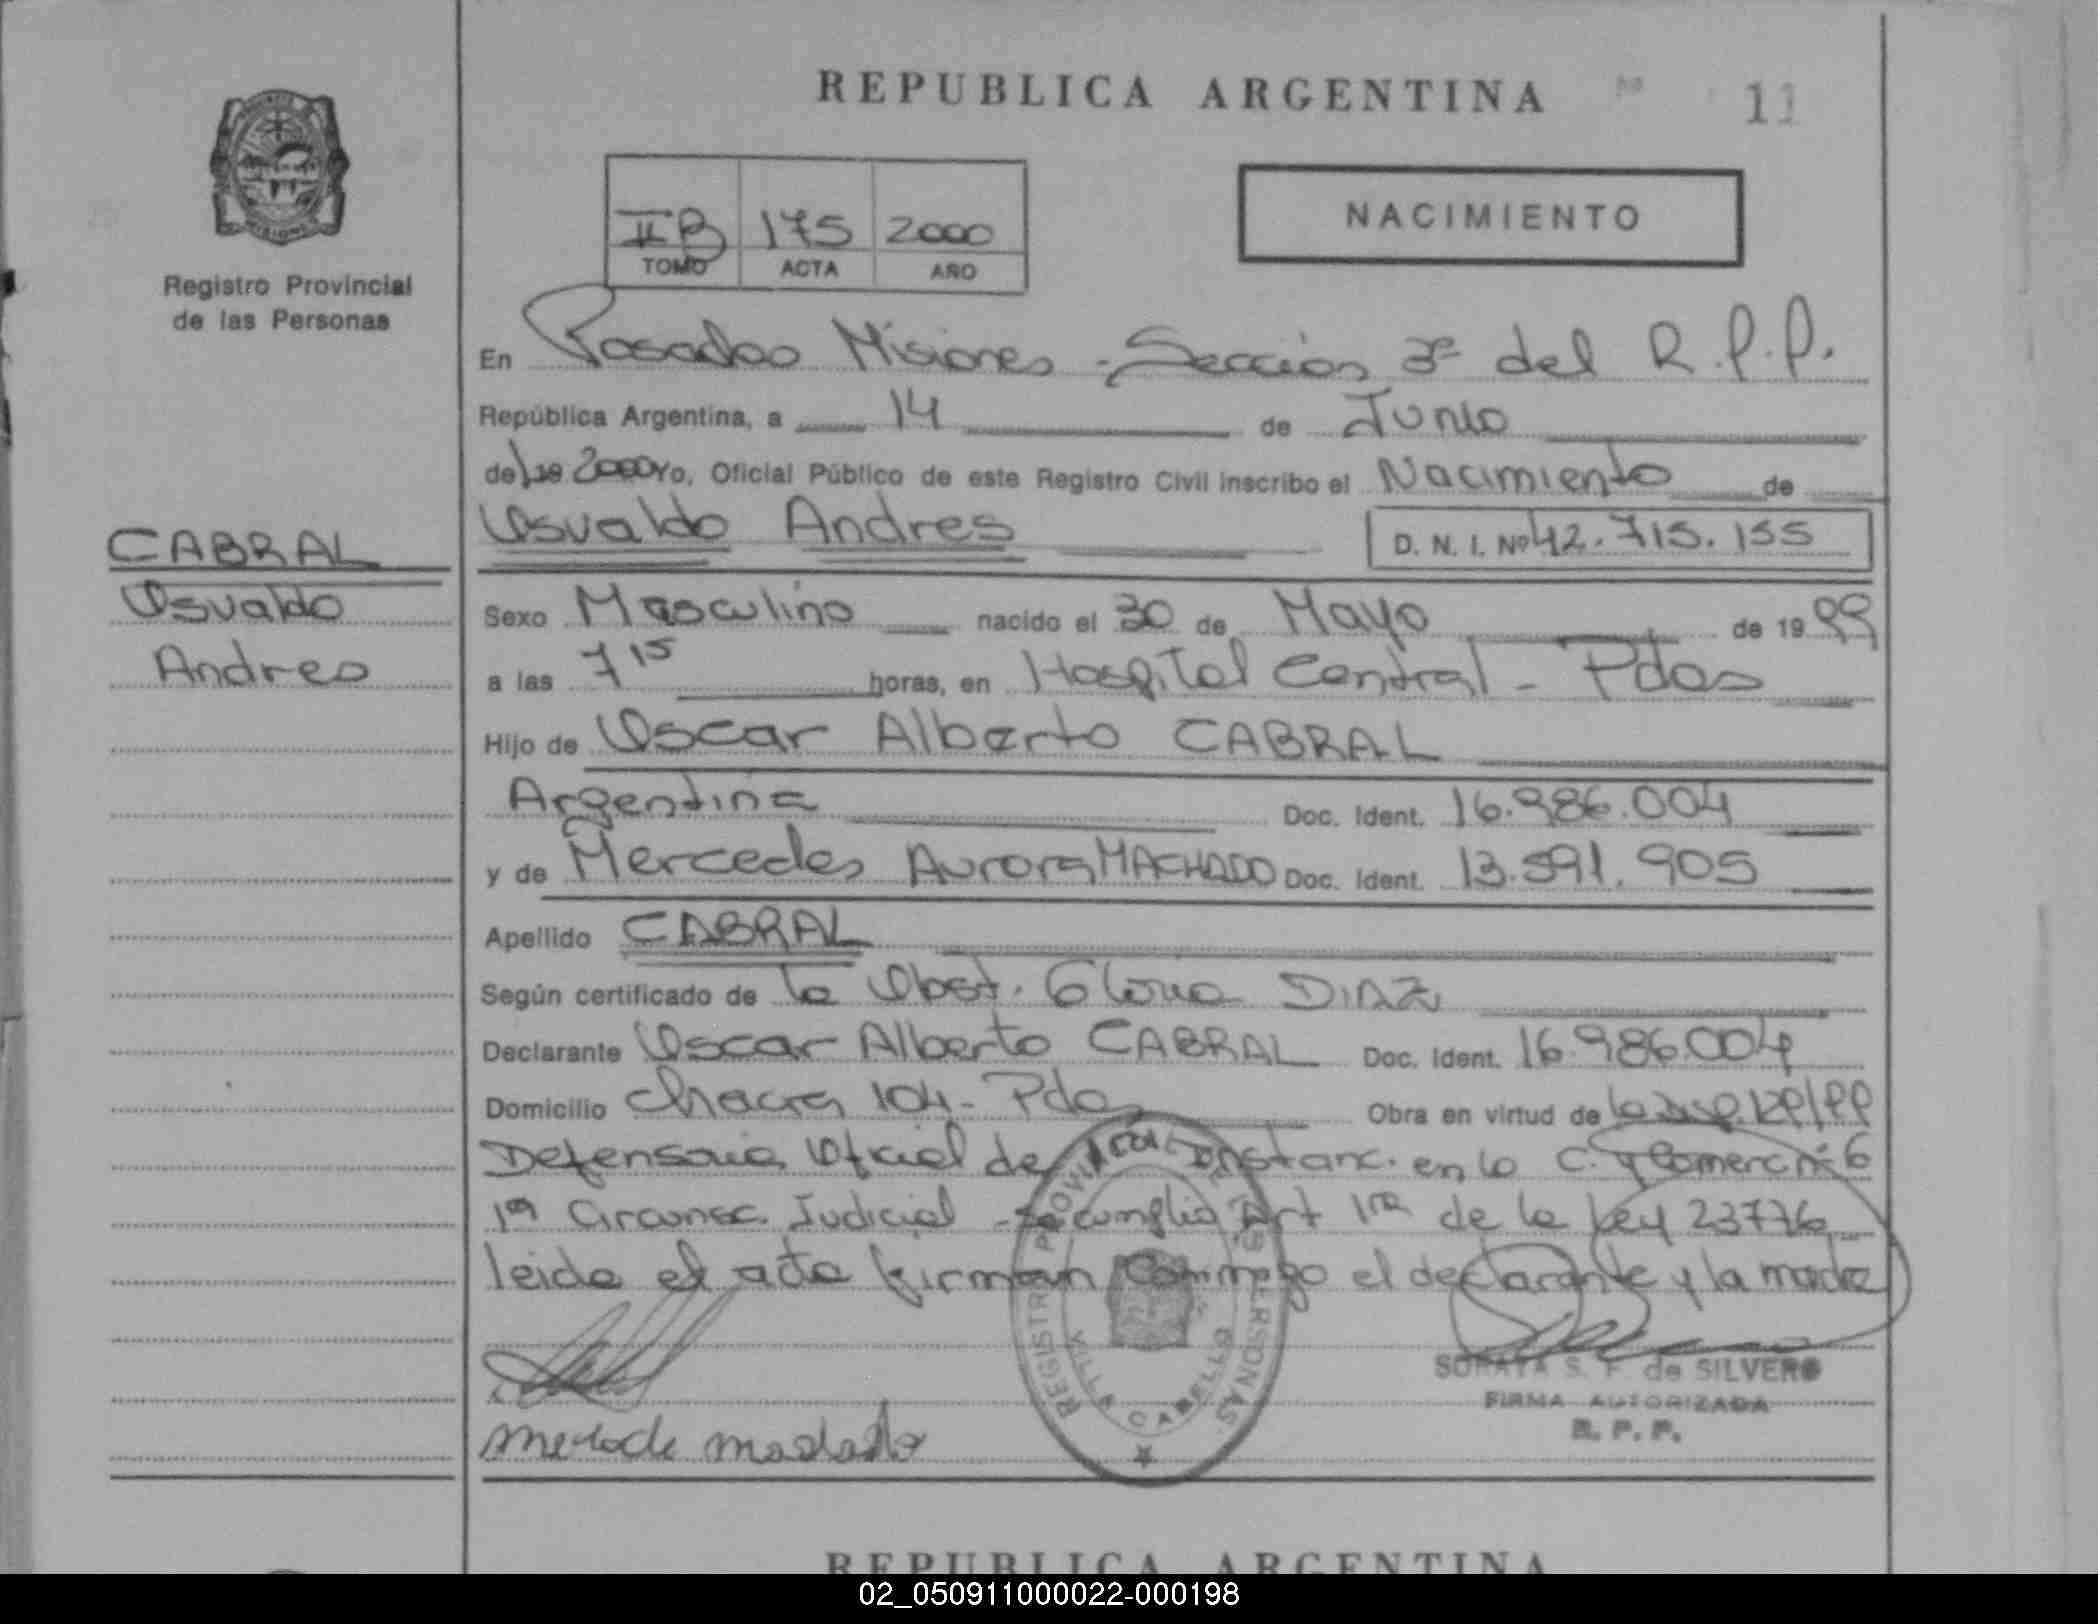 REPUBLICA ARGENTINA
11
Registro Provincial
de las Personas
II B 175 2000
TOMO ACTA AÑO
NACIMIENTO
En Posadas Misiones - Sección 3ª del R.P.P.
República Argentina, a 14 de Junio
de 2000 Yo, Oficial Público de este Registro Civil inscribo el Nacimiento de
Osvaldo Andres D. N. I. Nº 42.715.155
CABRAL
Osvaldo
Andres
Sexo Masculino nacido el 30 de Mayo de 1999
a las 7 15 horas, en Hospital Central - Pdas
Hijo de Oscar Alberto CABRAL
Argentina Doc. Ident. 16.986.004
y de Mercedes Aurora MACHADO Doc. Ident. 13.591.905
Apellido CABRAL
Según certificado de la Obst. Gloria DIAZ
Declarante Oscar Alberto CABRAL Doc. Ident. 16.986.004
Domicilio Chacra 104 - Pdas Obra en virtud de la
Defensoria Oficial de Instanc. en lo C. y Comerc nº 6
1ª Circunsc. Judicial - se cumplio Art 1ro de la Ley 23776
leida el acta firman conmigo el declarante y la madre
REGISTRO PROVINCIAL DE LAS PERSONAS
VILLA CABELLO
SORAYA S. F. de SILVERO
FIRMA AUTORIZADA
R. P. P.
REPUBLICA ARGENTINA
02_050911000022-000198